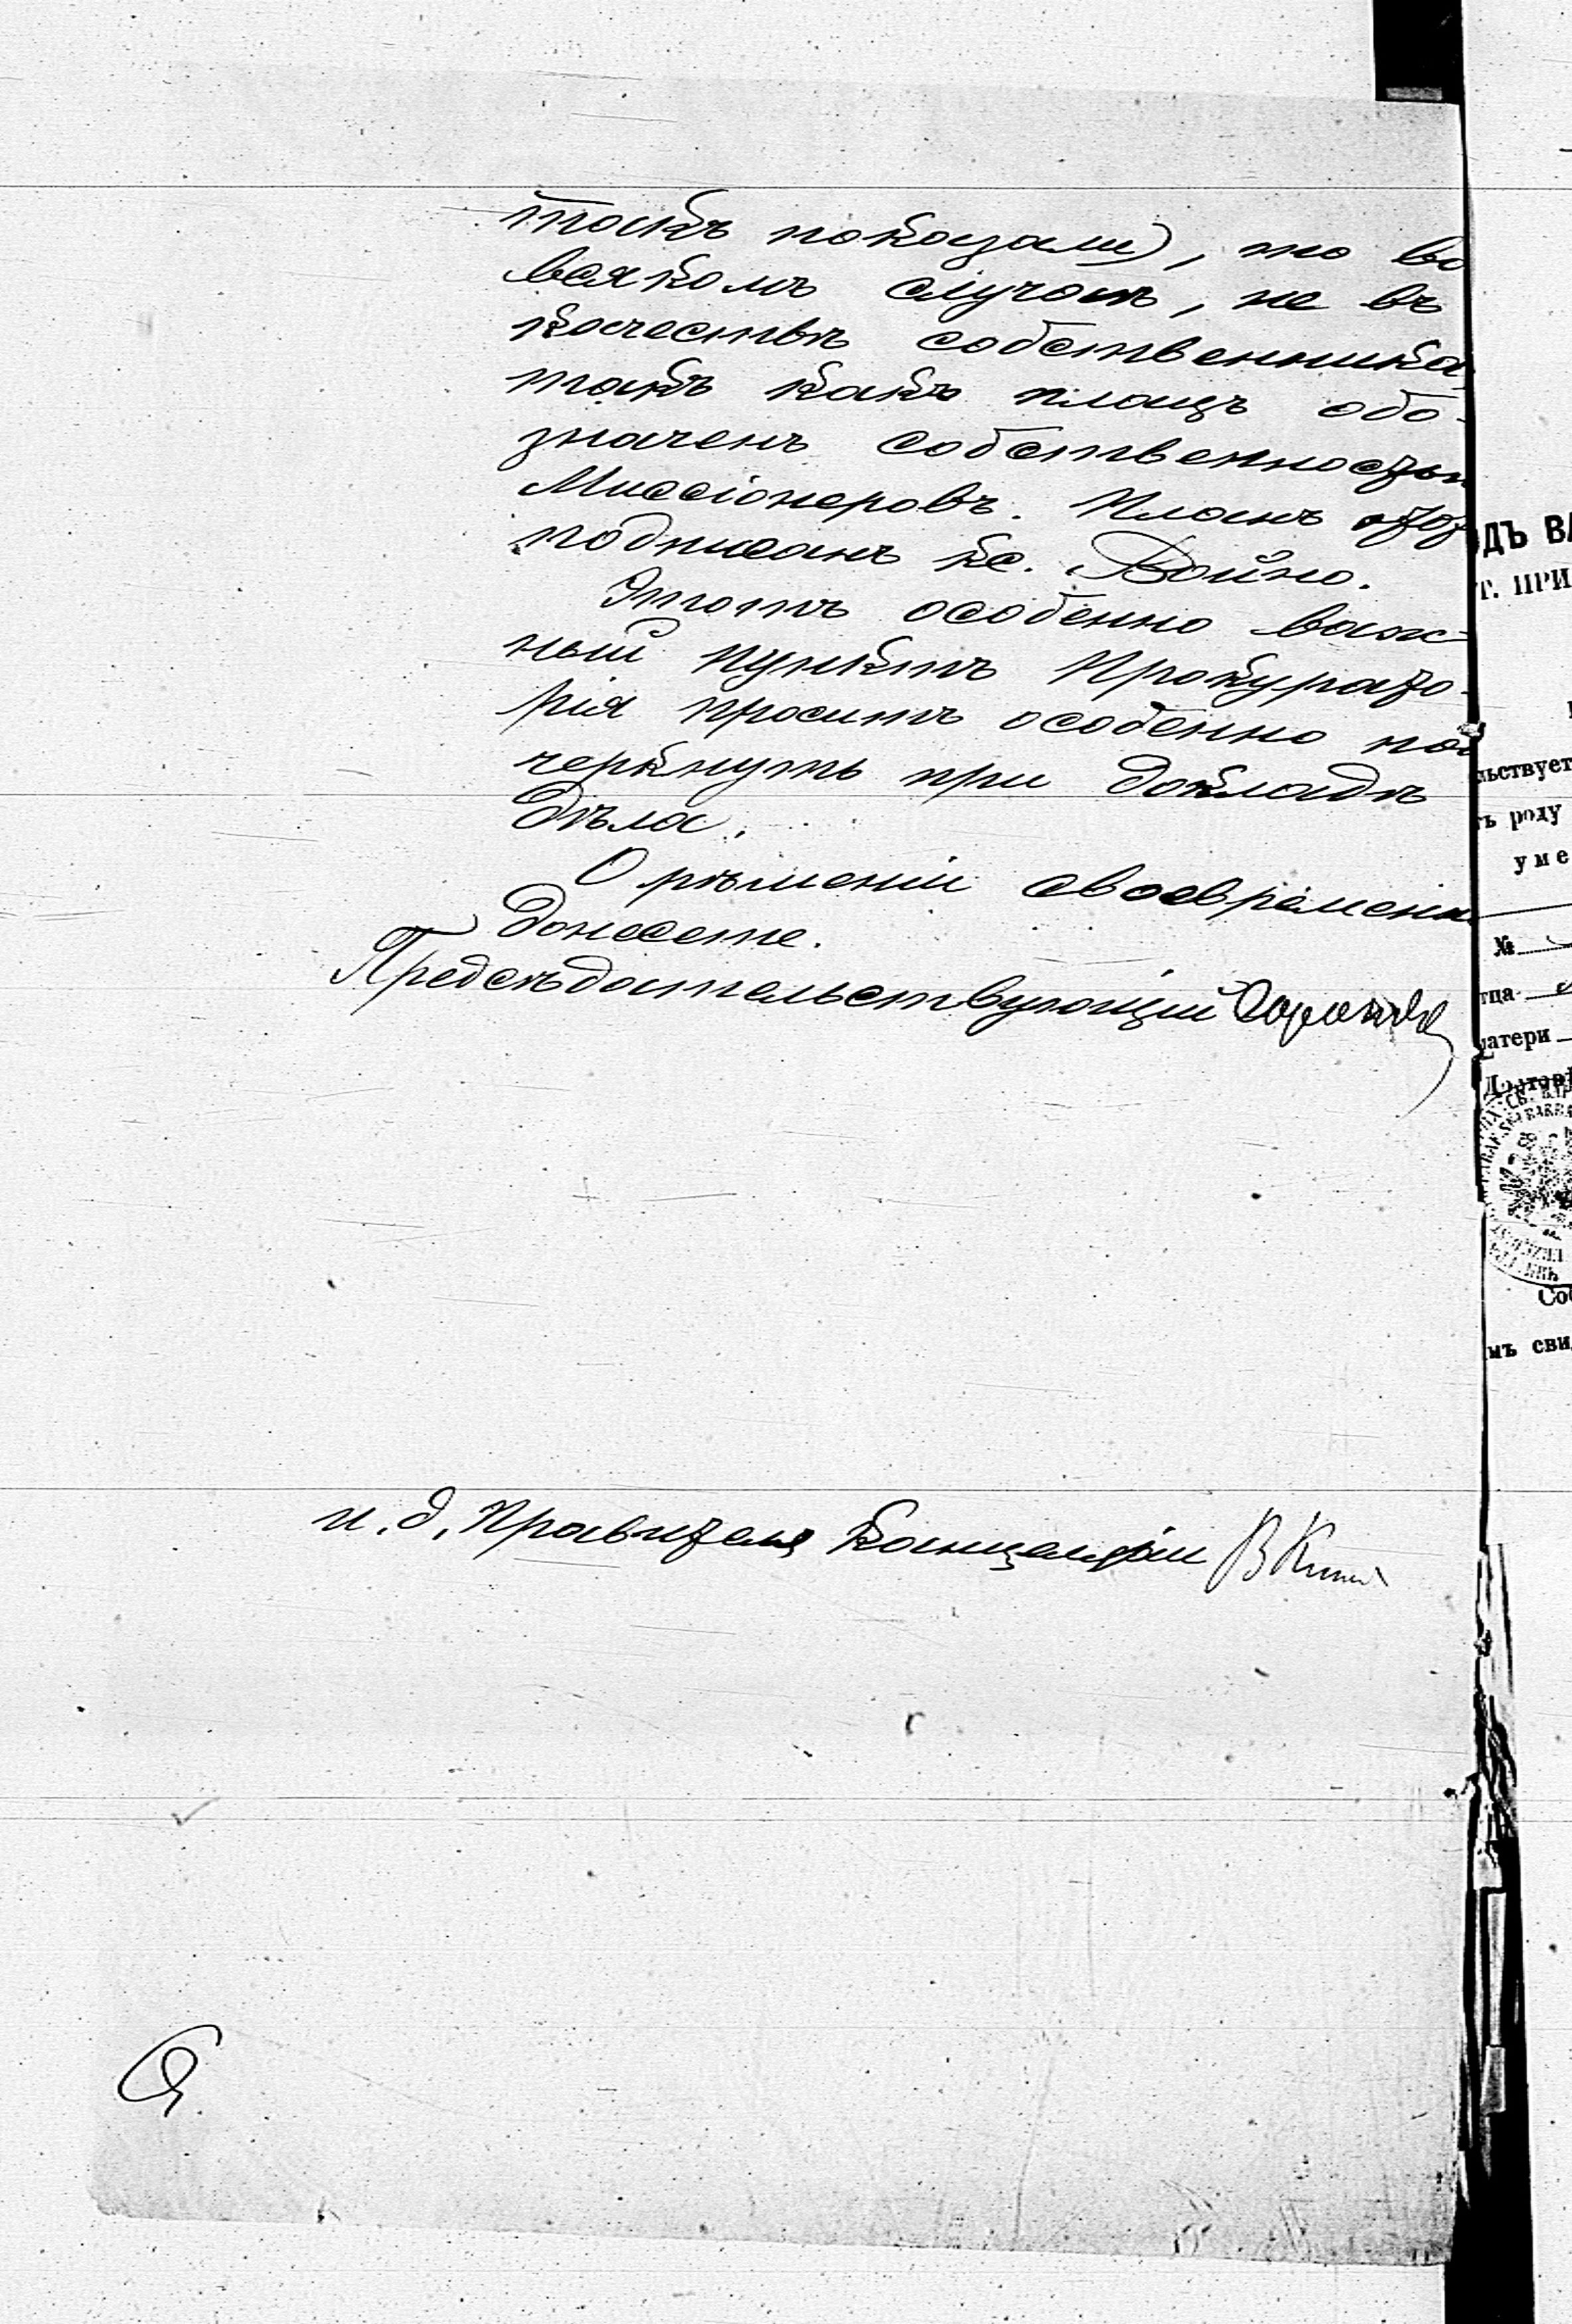 такъ показали), но во
всякомъ случаѣ, не въ
качествѣ собственника,
такъ какъ плацъ обо-
значенъ собственностью
Миссіонеровъ. Планъ этотъ
подписанъ кс. Война.
Этотъ особенно важ-
ный пунктъ Прокурато-
рія проситъ особенно под
черкнуть при докладѣ
дѣла.
О рѣшеніи своевременно
донесете.
Предсѣдательствующій
и. д. Правителя Канцеляріи
ДЪ ВА
Г. ПРИ
льствует
ъ роду
уме
№
тца
матери
Сов
мъ сви